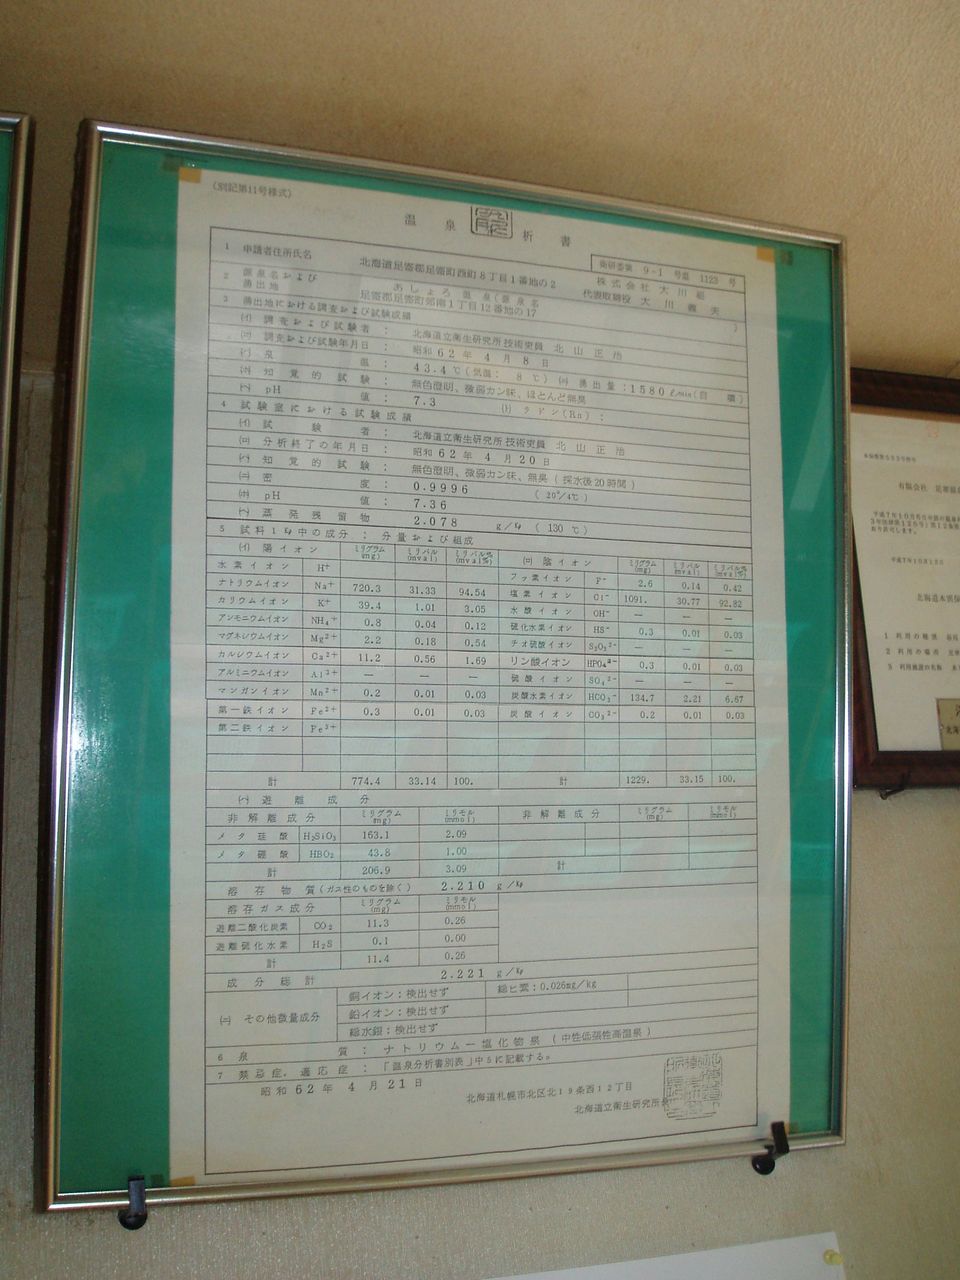 (別記第11号様式)
温泉 析書
衛研番第 9-1 号温 1123 号
1 申請者住所氏名 北海道足寄郡足寄町西町8丁目1番地の2 株式会社大川組
代表取締役 大川義夫
2 源泉名および湧出地 あしょろ温泉(源泉名 )
足寄郡足寄町郊南1丁目12番地の17
3 湧出地における調査および試験成績
(イ) 調査および試験者: 北海道立衛生研究所 技術吏員 北山正治
(ロ) 調査および試験年月日: 昭和62年4月8日
(ハ) 泉温: 43.4℃(気温: 8℃) (ホ) 湧出量:1580ℓ/min(自噴)
(ニ) 知覚的試験: 無色澄明、微弱カン味、ほとんど無臭
pH値: 7.3 (ト) ラドン(Rn):
4 試験室における試験成績
(イ) 試験者: 北海道立衛生研究所 技術吏員 北山正治
(ロ) 分析終了の年月日: 昭和62年4月20日
(ハ) 知覚的試験: 無色澄明、微弱カン味、無臭(採水後20時間)
(ニ) 密度: 0.9996 (20°/4℃)
(ホ) pH値: 7.36
(ヘ) 蒸発残留物 2.078 g/kg (130℃)
5 試料1kg中の成分:分量および組成
(イ) 陽イオン ミリグラム(mg) ミリバル(mval) ミリバル%(mval%) (ロ) 陰イオン ミリグラム(mg) ミリバル(mval) ミリバル%(mval%)
水素イオン H⁺ フッ素イオン F⁻ 2.6 0.14 0.42
ナトリウムイオン Na⁺ 720.3 31.33 94.54 塩素イオン Cl⁻ 1091. 30.77 92.82
カリウムイオン K⁺ 39.4 1.01 3.05 水酸イオン OH⁻ — — —
アンモニウムイオン NH₄⁺ 0.8 0.04 0.12 硫化水素イオン HS⁻ 0.3 0.01 0.03
マグネシウムイオン Mg²⁺ 2.2 0.18 0.54 チオ硫酸イオン S₂O₃²⁻ — — —
カルシウムイオン Ca²⁺ 11.2 0.56 1.69 リン酸イオン HPO₄²⁻ 0.3 0.01 0.03
アルミニウムイオン Al³⁺ — — — 硫酸イオン SO₄²⁻ — — —
マンガンイオン Mn²⁺ 0.2 0.01 0.03 炭酸水素イオン HCO₃⁻ 134.7 2.21 6.67
第一鉄イオン Fe²⁺ 0.3 0.01 0.03 炭酸イオン CO₃²⁻ 0.2 0.01 0.03
第二鉄イオン Fe³⁺
計 774.4 33.14 100. 計 1229. 33.15 100.
(ハ) 遊離成分
非解離成分 ミリグラム(mg) ミリモル(mmol) 非解離成分 ミリグラム(mg) ミリモル(mmol)
メタ珪酸 H₂SiO₃ 163.1 2.09
メタ硼酸 HBO₂ 43.8 1.00
計 206.9 3.09 計
溶存物質(ガス性のものを除く) 2.210 g/kg
溶存ガス成分 ミリグラム(mg) ミリモル(mmol)
遊離二酸化炭素 CO₂ 11.3 0.26
遊離硫化水素 H₂S 0.1 0.00
計 11.4 0.26
成分総計 2.221 g/kg
(ニ) その他微量成分 銅イオン:検出せず 総ヒ素:0.026mg/kg
鉛イオン:検出せず
総水銀:検出せず
6 泉質: ナトリウムー塩化物泉(中性低張性高温泉)
7 禁忌症、適応症:「温泉分析書別表」中5に記載する。
昭和62年4月21日
北海道札幌市北区北19条西12丁目
北海道立衛生研究所長
有限会社
平成7年10月
1 利用の種別
2 利用の場所
3 利用施設の名称